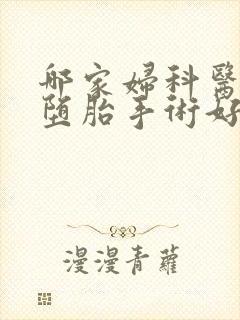 哪家婦科醫
墮胎手術好
漫漫青蘿